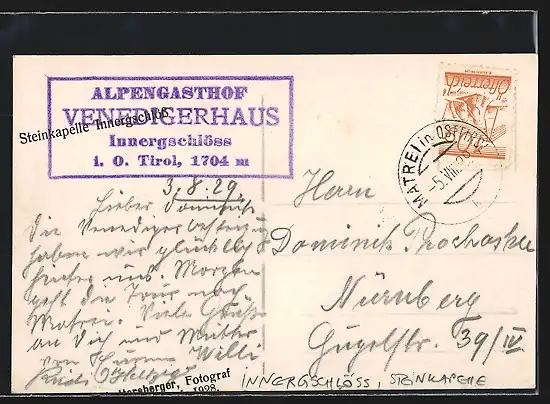 Steinkapelle Innergschlöß
ALPENGASTHOF
VENEDIGERHAUS
Innergschlöss
i. O. Tirol, 1704 m
3.8.29.
Lieber Dominik
Die Venedigerbesteigung
haben wir glücklich
hinter uns. Morgen
geht die Tour nach
Matrei. Viele Grüße
an Dich und Mutter
von Willi
Rudi
Herrn
Dominik Prochaska
Nürnberg
Gugelstr. 39/IV
MATREI in OSTTIROL
Österreich
Fotograf
1928.
INNERGSCHLÖSS, STEINKAPELLE